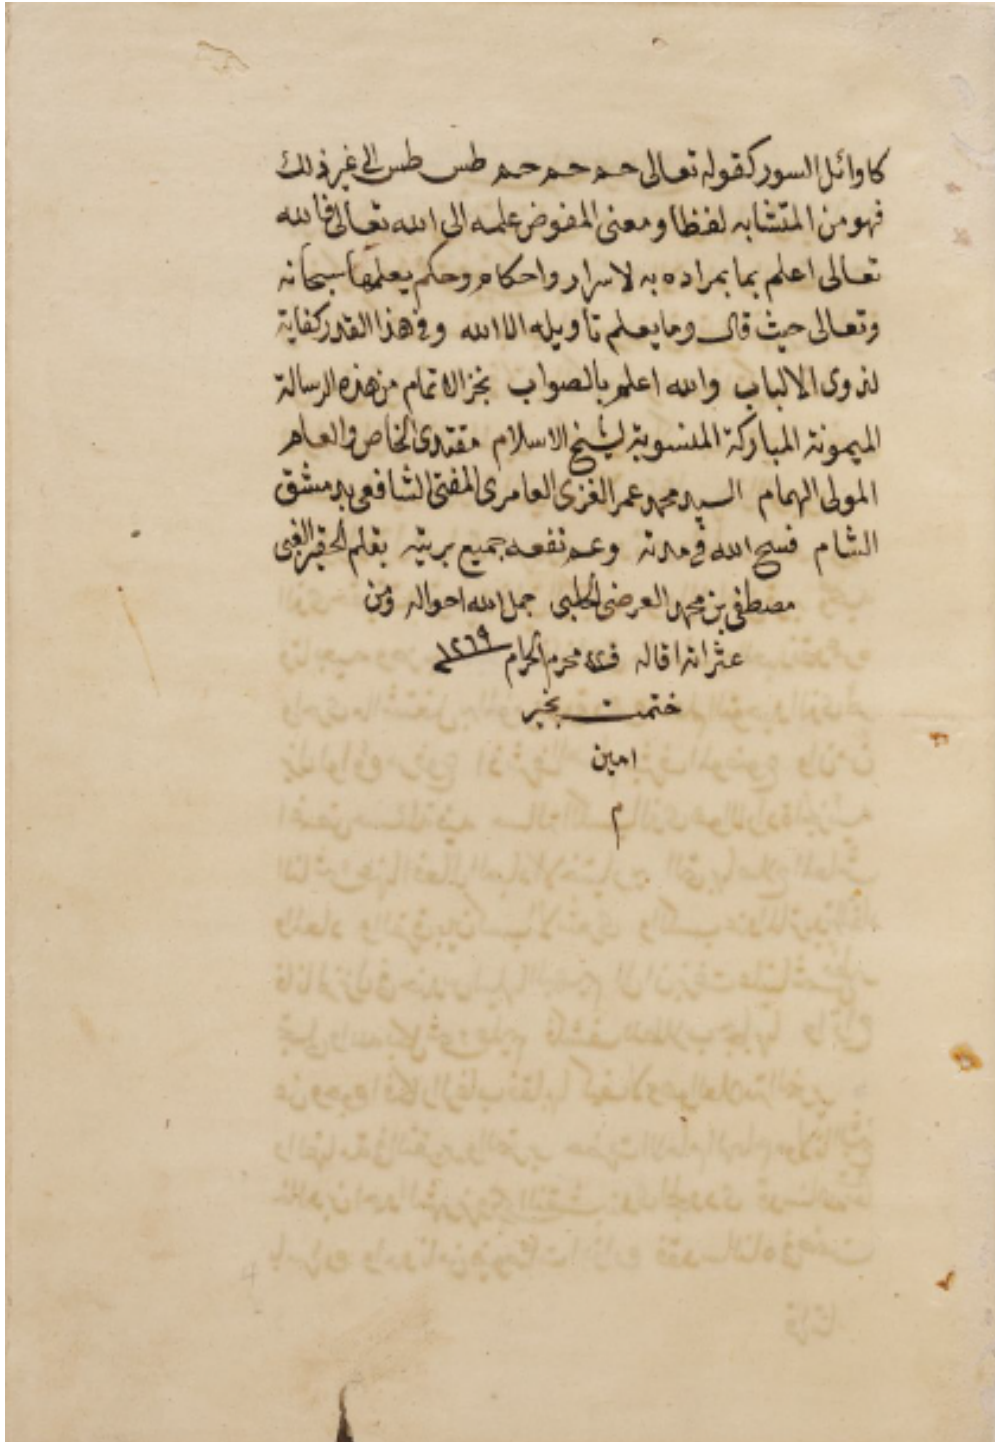 كاوائل السور كقوله تعالى حم حم حم طس طس الى غير ذلك
فهو من المتشابه لفظا ومعنى المفوض علمه الى الله تعالى فالله
تعالى اعلم بما بمراده به لاسرار واحكام وحكم يعلمها سبحانه
وتعالى حيث قال وما يعلم تأويله الا الله وفي هذا القدر كفاية
لذوي الالباب والله اعلم بالصواب نجز الاتمام من هذه الرسالة
الميمونة المباركة المنسوبة لشيخ الاسلام مقتدى الخاص والعام
المولى الهمام السيد محمد عمر الغزي العامري المفتي الشافعي بدمشق
الشام فسح الله في مدته وعم نفعه جميع بريته بقلم الحقير الغبي
مصطفى بن محمد العرضي الحلبي جمل الله احواله ومن
عثراته اقاله في محرم الحرام ١٢٦٩
ختمت بخير
امين
م